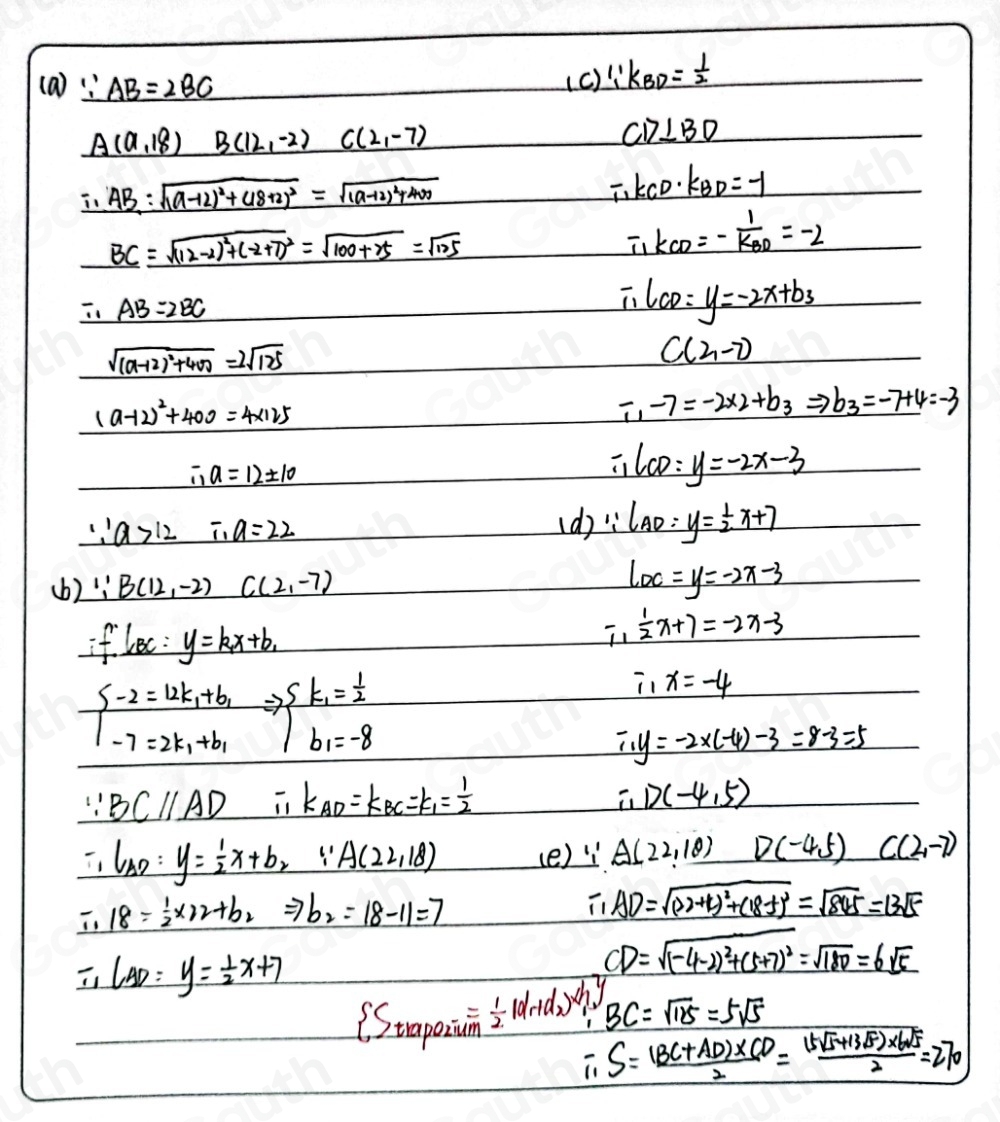 (a) ∵ AB = 2BC
A(a,18) B(12,-2) C(2,-7)
∴ AB: √(a-12)²+(18+2)² = √(a-12)²+400
BC = √(12-2)²+(-2+7)² = √100+25 = √125
∴ AB=2BC
√(a-12)²+400 = 2√125
(a-12)²+400 = 4×125
∴ a = 12±10
∵ a>12 ∴ a=22
(b) ∵ B(12,-2) C(2,-7)
if lBC: y=k₁x+b₁
{-2=12k₁+b₁ ⇒ {k₁=1/2
-7=2k₁+b₁ b₁=-8
∵ BC // AD ∴ kAD=kBC=k₁=1/2
∴ lAD: y=1/2x+b₂ ∵ A(22,18)
∴ 18=1/2×22+b₂ ⇒ b₂=18-11=7
∴ lAD: y=1/2x+7
(c) ∵ kBD=1/2
CD⊥BD
∴ kCD·kBD=-1
∴ kCD=-1/kBD=-2
∴ lCD: y=-2x+b₃
C(2,-7)
∴ -7=-2×2+b₃ ⇒ b₃=-7+4=-3
∴ lCD: y=-2x-3
(d) ∵ lAD: y=1/2x+7
lDC = y=-2x-3
∴ 1/2x+7=-2x-3
∴ x=-4
∴ y=-2×(-4)-3=8-3=5
∴ D(-4,5)
(e) ∵ A(22,18) D(-4,5) C(2,-7)
∴ AD=√(22+4)²+(18-5)² = √845 = 13√5
CD=√(-4-2)²+(5+7)² = √180 = 6√5
{S trapozium = 1/2 (d₁+d₂)×h}
∵ BC=√125=5√5
∴ S=(BC+AD)×CD/2 = (5√5+13√5)×6√5/2 = 270
Gauth